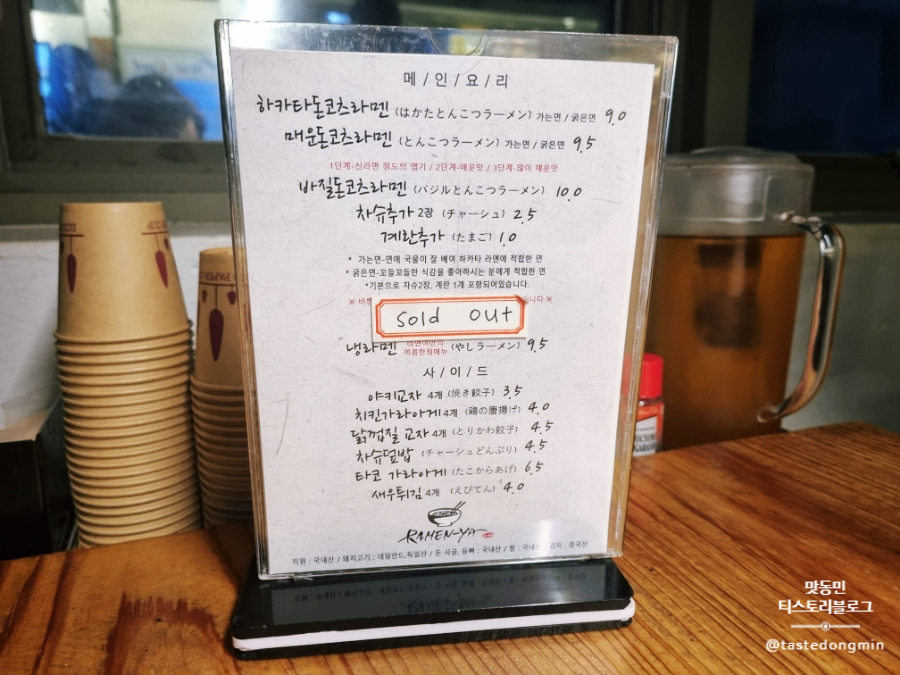 메/인/요/리
하카타돈코츠라멘 (はかたとんこつラーメン) 가는면 / 굵은면 9.0
매운돈코츠라멘 (とんこつラーメン) 가는면 / 굵은면 9.5
1단계-신라면 정도의 맵기 / 2단계-매운맛 / 3단계-많이 매운맛
바질돈코츠라멘 (バジルとんこつラーメン) 10.0
차슈추가 2장 (チャーシュ) 2.5
계란추가 (たまご) 1.0
* 가는면-면에 국물이 잘 베여 하카타 라멘에 적합한 면
* 굵은면-꼬들꼬들한 식감을 좋아하시는 분에게 적합한 면
*기본으로 차슈2장, 계란 1개 포함되어있습니다.
※ 바쁜 습니다 ※
sold out
냉라멘 라멘야만의 여름한정메뉴 (やしラーメン) 9.5
사/이/드
야키교자 4개 (焼き餃子) 3.5
치킨가라아게 4개 (鶏の唐揚げ) 4.0
닭껍질 교자 4개 (とりかわ餃子) 4.5
차슈덮밥 (チャーシュどんぶり) 4.5
타코 가라아게 (たこからあげ) 6.5
새우튀김 4개 (えびてん) 4.0
RAMEN-YA
국내산 / 돼지고기 : 네덜란드,독일산 / 돈 사골, 등뼈 : 국내산 / 쌀 : 국내산 김치 : 중국산
맛동민
티스토리블로그
@tastedongmin